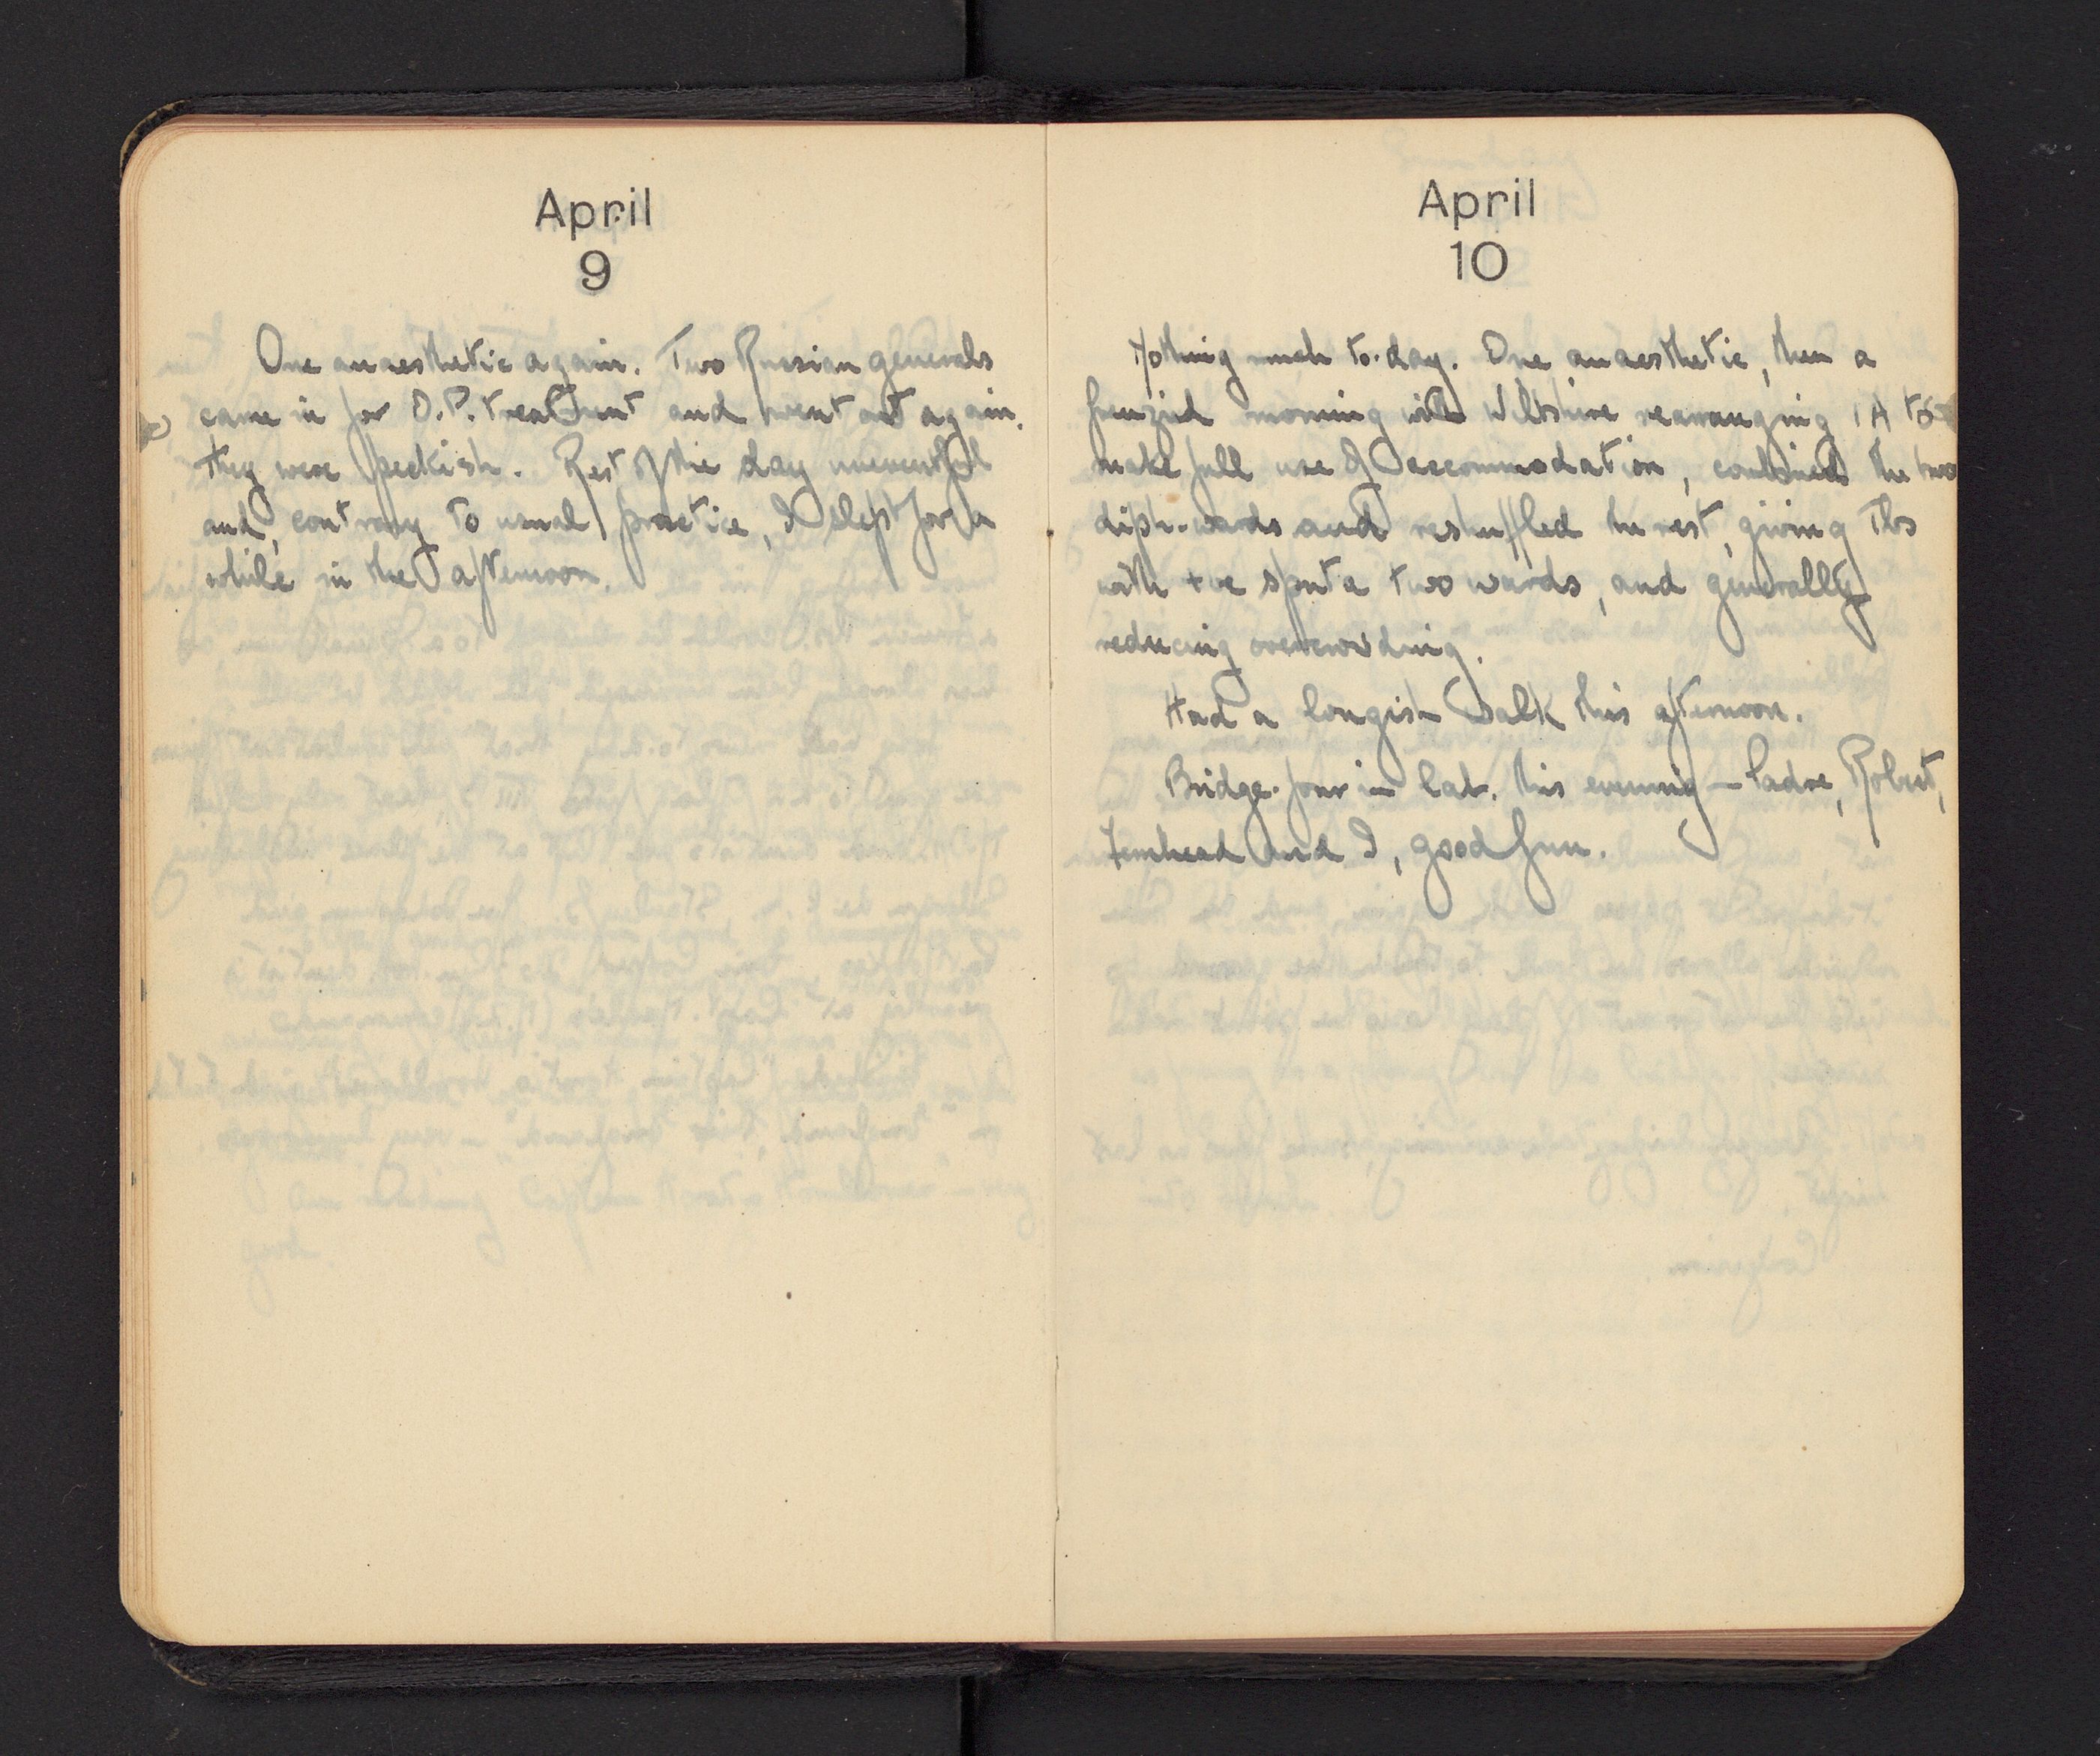 April
9
One anaesthetic again. Two Russian generals
came in for O.P. treatment and went out again.
They were peckish. Rest of the day uneventful
and, contrary to usual practice, I slept for a
while in the afternoon.
April
10
Nothing much to-day. One anaesthetic, then a
frenzied morning with Wiltshire rearranging 1A to
make full use of accommodation, combined the two
diph. wards and reshuffled the rest, giving Tbs
with +ve sputa two wards, and generally
reducing overcrowding.
Had a longish walk this afternoon.
Bridge four in lab. this evening — Padre, Robert,
and I, good fun.